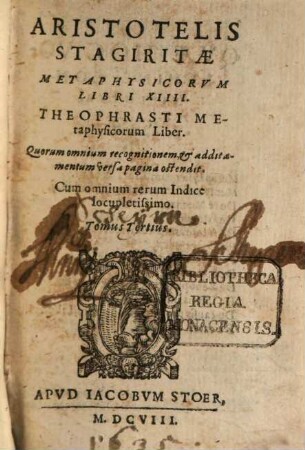 ARISTOTELIS
STAGIRITÆ
METAPHYSICORVM
LIBRI XIIII.
THEOPHRASTI ME-
taphysicorum Liber.
Quorum omnium recognitionem, & additamentum
mentum versa pagina ostendit.
Cum omnium rerum Indice
locupletissimo.
Tomus Tertius.
BIBLIOTHECA
REGIA
MONACENSIS.
APVD IACOBVM STOER,
M. DCVIII.
1635